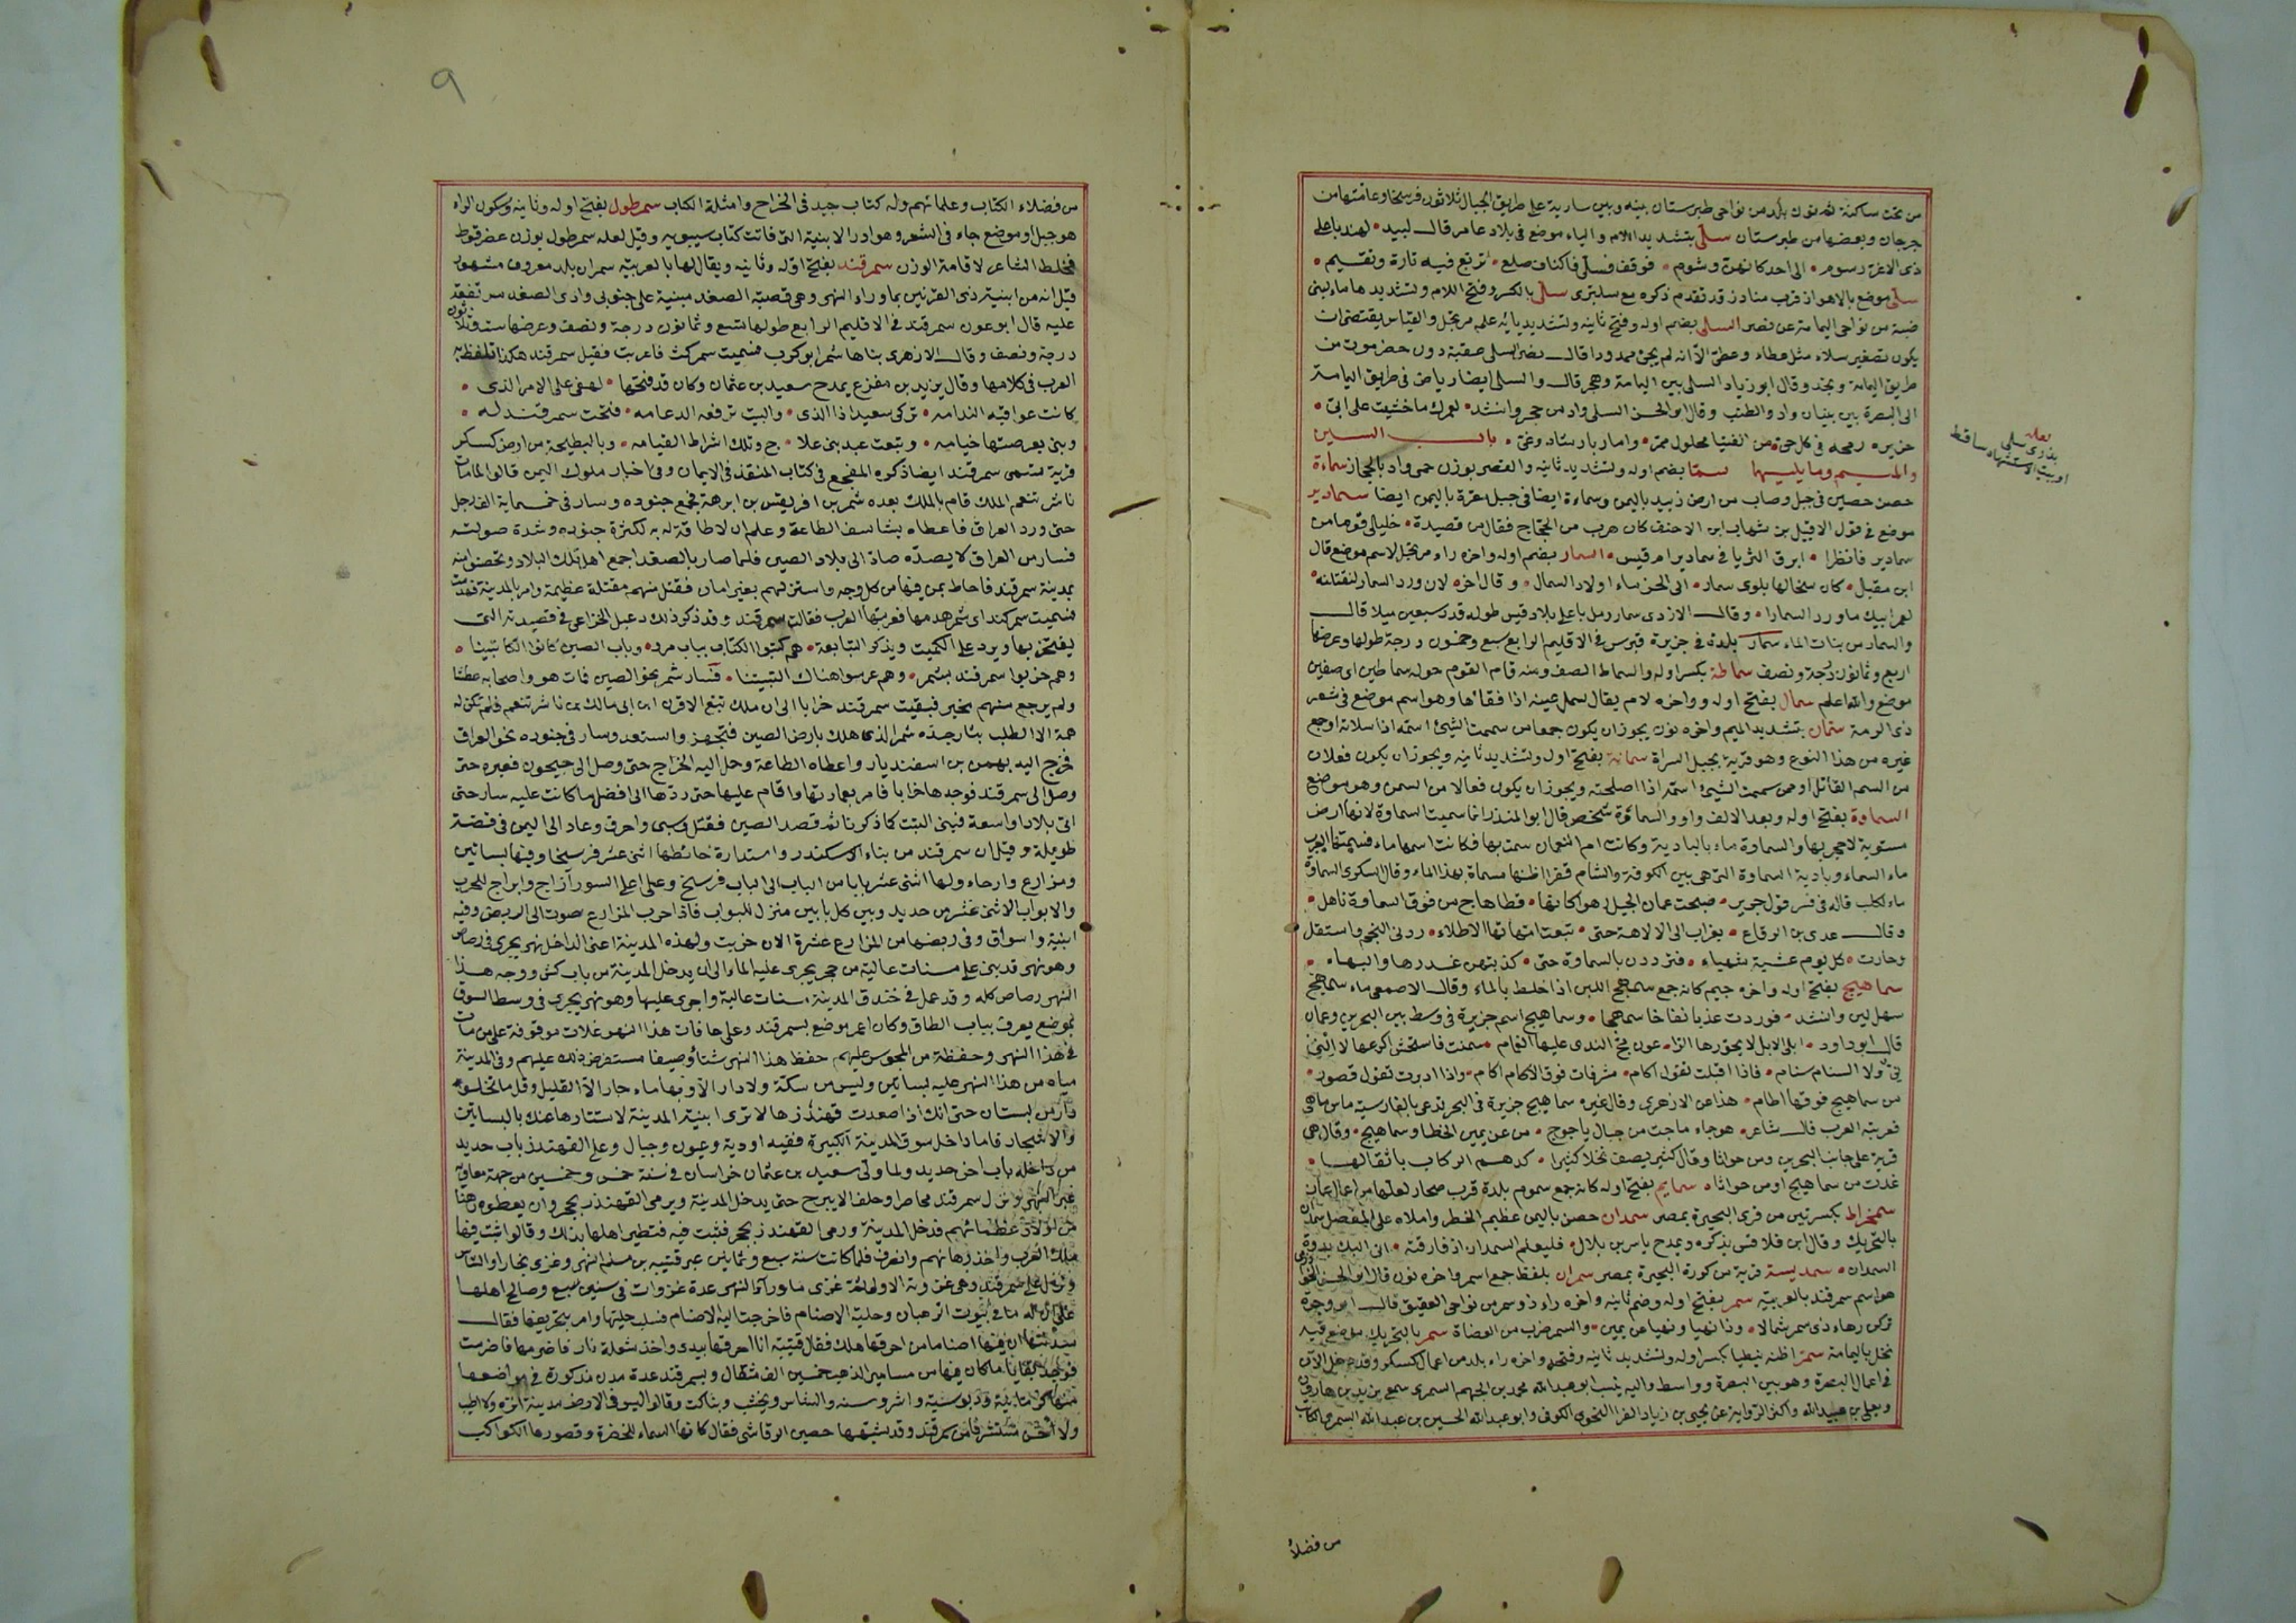 من تحت ساكنة ثم نون بلد من نواحى طبرستان بينه وبين سارية على طريق الجبال ثلاثون فرسخا وعامتها من
جرجان وبعضها من طبرستان سلّى بتشديد اللام والياء موضع فى بلاد عامر قال لبيد • لهند باعلى
ذى الاغر رسوم • الى احد كانهن وشوم • فوقف فسلى فاكناف ضلع • تربع فيه تارة وتقيم •
سلّى موضع بالاهواز قرب مناذر قد تقدم ذكره مع سلبرى سلّى بالكسر وفتح اللام وتشديدها ماء لبنى
ضبة من نواحى اليمامة عن نصر السلى بضم اوله وفتح ثانيه وتشديد يائه علم مرتجل والقياس يقتضى ان
يكون تصغير سلاء مثل عطاء وعطى الا انه لم يجئ ممدودا قال نصر السلى عقبة دون حضرموت من
طريق اليمامة ونجد وقال ابو زياد السلى بين اليمامة وهجر قال والسلى ايضا رياض فى طريق اليمامة
الى البصرة بين بنبان واد والطنب وقال ابو الحسن السلى واد من حجر وانشد • لعمرك ما خشيت على ابىّ •
باب السين
والميم وما يليهما سمّا بضم اوله وتشديد ثانيه والقصر بوزن حمى واد بالحجاز سماءة
حصن حصين فى جبل وصاب من ارض زبيد باليمن وسماءة ايضا فى جبل مقرة باليمن ايضا سمادير
موضع فى قول الاقيبل بن شهاب ابن الاحنف كان هرب من الحجاج فقال من قصيدة • خليلى قوما من
سمادير فانظرا • ابرق الثريا فى سمادير ام قيس • السمار بضم اوله واخره راء مرتجل لاسم موضع قال
ابن مقبل • كان سخالها بلوى سمار • الى الخرساء اولاد السمال • وقال اخر • لان ورد السمار لنقتلنه •
لعمر ابيك ما ورد السمارا • وقال الازدى سمار رمل باعلى بلاد قيس طوله قدر سبعين ميلا قال
والسمار من بنات الماء سمار بلدة فى جزيرة قبرس فى الاقليم الرابع سبع وخمسون درجة طولها وعرضها
اربع وثمانون درجة ونصف سماطة بكسر اوله والسماط الصف ومنه قام القوم حوله سماطين اى صفين
موضع والله اعلم سمال بفتح اوله وواخره لام يقال سمل عينه اذا فقأها وهو اسم موضع فى شعر
ذى الرمة سمّان بتشديد الميم واخره نون يجوز ان يكون جمعا من سممت الشئ اسمه اذا سلانه اوجع
غيره من هذا النوع وهو قرية بجبل السراة سمانة بفتح اوله وتشديد ثانيه ويجوز ان يكون فعلان
من السم القاتل او من سممت الشئ اسمه اذا اصلحته ويجوز ان يكون فعالا من السمن وهو موضع
السماوة بفتح اوله وبعد الالف واو والسماوة شخص قال ابو المنذر انما سميت السماوة لانها ارض
مستوية لا حجر بها والسماوة ماء بالبادية وكانت ام النعمان سميت بها فكانت اسمها ماء فسمتها العرب
ماء السماء وبادية السماوة التى هى بين الكوفة والشام قفرا اظنها مسماة بهذا الماء وقال السكرى السماوة
ماء لكلب قاله فى فسر قول جرير • صبحت عمان الخيل رهوا كانها • قطا هاج من فوق السماوة ناهل •
وقال عدى بن الرقاع • بغراب الى الالاهة حتى • تبعت امهاتها الاطلاء • ردنى النجم واستقل
وحارت • كل يوم عشية شهباء • فتردون بالسماوة حتى • كذبتهن غدرها والنهاء •
سماهيج بفتح اوله واخره جيم كانه جمع سمهج اللبن اذا خلط بالماء وقال الاصمعى ماء سمهج
سهل لين وانشد • فوردت عذبا نقاخا سمهجا • وسماهيج اسم جزيرة فى وسط بين البحرين وعمان
قال ابو داود • ابلى الابل لا يحوزها الرا • عون مج الندى عليها الغمام • سمنت فاستحش اكرعها لا النى
نى ولا السنام سنام • فاذا اقبلت تقول اكام • مشرفات فوق الاكام اكام • واذا ادبرت تقول قصور •
من سماهيج فوقها اطام • هذا عن الازهرى وقال غيره سماهيج جزيرة فى البحر تدعى بالفارسية ماس ماهى
فعربته العرب قال شاعر • هوجاء ماجت من جبال ياجوج • من عن يمين الخط او سماهيج • وقال هى
قرية على جانب البحرين ومن جواثا وقال كثير يصف نخلا كثيرا • كدهم الركاب باثقالها •
غدت من سماهيج او من جواثا • سمايم بفتح اوله كانه جمع سموم بلدة قرب صحار لعلها من اعمال عمان
سمخراط بكسرتين من قرى البحيرة بمصر سمدان حصن باليمن عظيم الخطر واملاه على المفضل سمدان
بالتحريك وقال ابن قلاقس يذكره ويمدح ياسر بن بلال • فليعلم السمدان اذ فارقته • انى اليك
السمدان • سمديسة قرية من كورة البحيرة بمصر سمران بلفظ جمع اسمر واخره نون قال ابو الحسن الخوارزمى
هو اسم سمرقند بالعربية سمر بفتح اوله وضم ثانيه واخره راء ذو سمر من نواحى العقيق قال ابو وجزة
تركن زهاء ذى سمر شمالا • وذا نهيا ونهيا عن يمين • والسمر ضرب من العضاة سمر بالتحريك موضع فيه
نخل باليمامة سمّر اظنه نبطيا بكسر اوله وتشديد ثانيه وفتحه واخره راء بلد من اعمال كسكر وقد دخل الآن
فى اعمال البصرة وهو بين البصرة وواسط واليه ينسب ابو عبد الله محمد بن الجهم السمرى سمع يزيد بن هارون
ويعلى بن عبيد الله واكثر الرواية عن يحيى بن زياد الفرا النحوى الكوفى وابو عبد الله الحسين بن عبد الله السمرى الكاتب
لعله
سلى
او بيت الاستشهاد ساقط
من فضلاء
٩
من فضلاء الكتاب وعلمائهم وله كتاب جيد فى الخراج وامثلة الكتاب سمرطول بفتح اوله وثانيه وسكون الراء
هو جبل او موضع جاء فى الشعر وهو ادر الابنية التى فاتت كتاب سيبويه وقيل لعله سمرطول بوزن عضرفوط
فخلط الشاعر لاقامة الوزن سمرقند بفتح اوله وثانيه ويقال لها بالعربية سمران بلد معروف مشهور
قيل انه من ابنية ذى القرنين بما وراء النهر وهى قصبة الصغد مبنية على جنوبى وادى الصغد مرتفعة
عليه قال ابو عون سمرقند فى الاقليم الرابع طولها تسع وثمانون درجة ونصف وعرضها ست وثلاثون
درجة ونصف وقال الازهرى بناها شمر ابو كرب فسميت شمركنت فاعربت فقيل سمرقند هكذا تلفظ به
العرب فى كلامها وقال يزيد بن مفرغ يمدح سعيد بن عثمان وكان قد فتحها • لهفى على الامر الذى •
كانت عواقبه الندامه • تركى سعيدا ذا الندى • والبيت ترفعه الدعامه • فتحت سمرقند له •
وبنى بعرصتها خيامه • وتبعت عبد بنى علا • ج وتلك اشراط القيامه • وبالبطيحة من ارض كسكر
قرية تسمى سمرقند ايضا ذكره المفجع فى كتاب المنقذ فى الايمان وفى اخبار ملوك اليمن قالوا لما مات
ناشر ينعم الملك قام بالملك بعده شمر بن افريقس بن ابرهة فجمع جنوده وسار فى خمسماية الف رجل
حتى ورد العراق فاعطاه بشتاسف الطاعة وعلم ان لا طاقة له به لكثرة جنوده وشدة صولته
فسار من العراق لا يصده صاد الى بلاد الصين فلما صار بالصغد اجمع اهل تلك البلاد وتحصنوا منه
بمدينة سمرقند فاحاط بمن فيها من كل وجه واستنزلهم بغير امان فقتل منهم مقتلة عظيمة وامر بالمدينة فهدمت
فسميت شمركند اى شمر هدمها فعربتها العرب فقالت سمرقند وقد ذكر ذلك دعبل الخزاعى فى قصيدته التى
يفتخر بها ويرد على الكميت ويذكر التبابعة • هم كتبوا الكتاب بباب مرو • وباب الصين كانوا الكاتبينا •
وهم خربوا سمرقند بشمر • وهم غرسوا هناك التبتينا • فسار شمر نحو الصين فمات هو واصحابه عطشا
ولم يرجع منهم مخبر فبقيت سمرقند خرابا الى ان ملك تبع الاقرن ابن ابى مالك بن ناشر ينعم فلم تكن له
همة الا الطلب بثار جده شمر الذى هلك بارض الصين فتجهز واستعد وسار فى جنوده نحو العراق
فخرج اليه بهمن بن اسفنديار واعطاه الطاعة وحمل اليه الخراج حتى وصل الى جيحون فعبره حتى
وصل الى سمرقند فوجدها خرابا فامر بعمارتها واقام عليها حتى ردها الى افضل ما كانت عليه سار حتى
اتى بلادا واسعة فبنى التبت كما ذكرنا ثم قصد الصين فقتل وسبى واحرق وعاد الى اليمن فى قصة
طويلة وقيل ان سمرقند من بناء الاسكندر واستدارة حائطها اثنى عشر فرسخا وفيها بساتين
ومزارع وارحاء ولها اثنى عشر بابا من الباب الى الباب فرسخ وعلى اعلى السور آزاج وابراج للحرب
والابواب الاثنى عشر من حديد وبين كل بابين منزل للبواب فاذا حرب المزارع صوت الى الربض وفيه
ابنية واسواق وفى ربضها من المزارع عشرة الان خربت ولهذه المدينة اعنى الداخل نهر يجرى فى رصاص
وهو نهر قد بنى على مسنات عالية من حجر يجرى عليه الماء الى ان يدخل المدينة من باب كش ووجه هذا
النهر رصاص كله وقد عمل فى خندق المدينة مسنات عالية واجرى عليها وهو نهر يجرى فى وسط السوق
بموضع يعرف بباب الطاق وكان اعمر موضع بسمرقند وعلى حافات هذا النهر غلات موقوفة على من بات
فى هذا النهر وحفظة من المجوس عليهم حفظ هذا النهر شتاء وصيفا مستفرض ذلك عليهم وفى المدينة
مياه من هذا النهر عليه بساتين وليس من سكة ولا دار الا وبها ماء جار الا القليل وقل ما تخلو
دار من بستان حتى انك اذا صعدت قهندزها لا ترى ابنية المدينة لاستتارها عنك بالبساتين
والاشجار فاما داخل سوق المدينة الكبيرة ففيه اودية وعيون وجبال وعلى القهندز باب حديد
من داخله باب اخر حديد ولما ولى سعيد بن عثمان خراسان فى سنة خمس وخمسين من جهة معاويه
عبر النهر ونزل سمرقند محاصرا وحلف لا يبرح حتى يدخل المدينة ويرمى القهندز بحجر وان يعطوه رهنا
من اولاد عظمائهم فدخل المدينة ورمى القهندز بحجر فثبت فيه فتطير اهلها بذلك وقالوا اثبت فيها
ملك العرب واخذ رهانهم وانصرف فلما كانت سنة سبع وثمانين عبر قتيبه بن مسلم النهر وغزى بخارا والشاش
ونزل على سمرقند وهى غزوته الاولى ثم غزى ما وراء النهر عدة غزوات فى سنين سبع وصالح اهلها
على ان له ما فى بيوت النيران وحلية الاصنام فاخرجت اليه الاصنام فسلب حليتها وامر بتحريقها فقال
سدنتها ان فيها اصناما من احرقها هلك فقال قتيبة انا احرقها بيدى واخذ شعلة نار فاضرمها فاضرمت
فوجد بقايا ما كان فيها من مسامير الذهب خمسين الف مثقال وبسمرقند عدة مدن مذكورة فى مواضعها
منها كرمانية ودبوسية واشروسنه والشاش ونخشب وبناكت وقالوا ليس فى الارض مدينة انزه ولا اطيب
ولا احسن مستشرفا من سمرقند وقد شبهها حصين الرقاشى فقال كانها السماء للخضرة وقصورها الكواكب